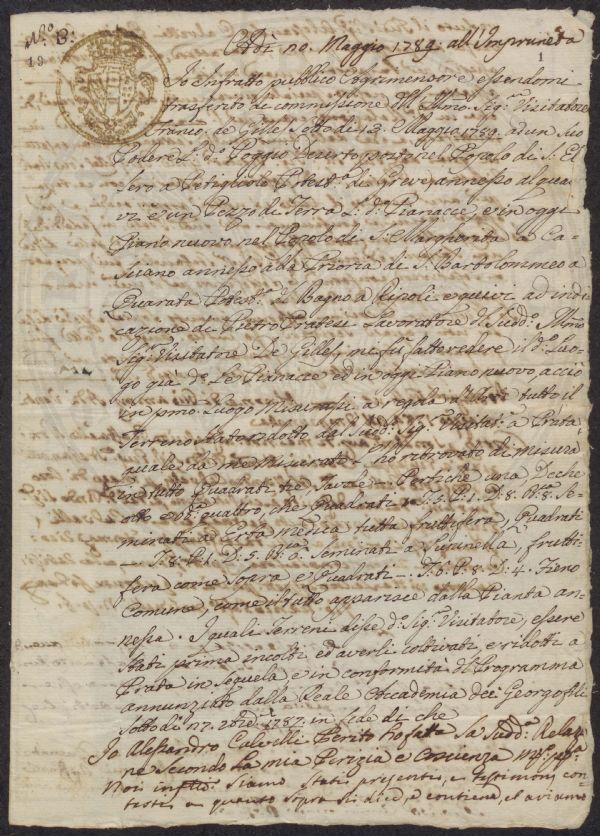 N.ro B:
19
1
Adì 20. Maggio 1789. all'Impruneta
Io Infratto pubblico Agrimensore essendomi
trasferito di commissione dell Illmo: Sig.re Visitatore
Franco: de Gilles sotto di 13. Maggio 1789. ad un suo
Podere L. d.o Poggio Deserto posto nel Popolo di S.
a Petigliolo Potest.a di Greve, annesso al qua
vi è un Pezzo di Terra L. d.o Pianacce, e in oggi
Piano nuovo nel Popolo di S. Margherita a Ca-
sciano annesso alla Prioria di S. Bartolommeo a
Quarata Potest.a del Bagno a Ripoli, e quivi ad indi
cazione di Pietro Pratesi Lavoratore del Sudd.o Illmo
Sig.re Visitatore De Gilles, mi fu fatto vedere il d.o Luo
go già d.o Le Pianacce ed in oggi Piano nuovo acciò
in pmo: Luogo Misurassi a regola d'Arte tutto il
Terreno stato ridotto dal Sudd.o Sig.re Visitat.e a Prato
quale da me Misurato L'ho ritrovato di misura
in tutto Quadrati tre, Tavole — Pertiche una, Deche
otto e quattro, che Quadrati
minati a Erba Medica tutta fruttifera, Quadrati
— T. 8. P. 1 D. 5. Seminati a Lupinella frutti-
fera come Sopra e Quadrati — T. 6. P. 8. D. 4. Fieno
Comune, come il tutto apparisce dalla Pianta an-
nessa. I quali Terreni disse d.o Sig.re Visitatore, essere
stati prima incolti ed averli coltivati, e ridotti a
Prata in sequela, e in conformità del Programma
annunziato dalla Reale Accademia dei Georgofili
sotto di 1787. in fede di che
Io Alessandro Calvelli Perito ho fatta la Sudd.a Relazio
ne Secondo la mia Perizia e Coscienza
Noi infrti: Siamo Stati presenti, e testimoni con-
testi a quanto sopra si dice, e contiene, ed aviamo